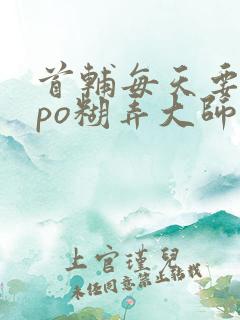 首輔每天要
po糊弄大師
上官瑾兒
未经同意禁止转载